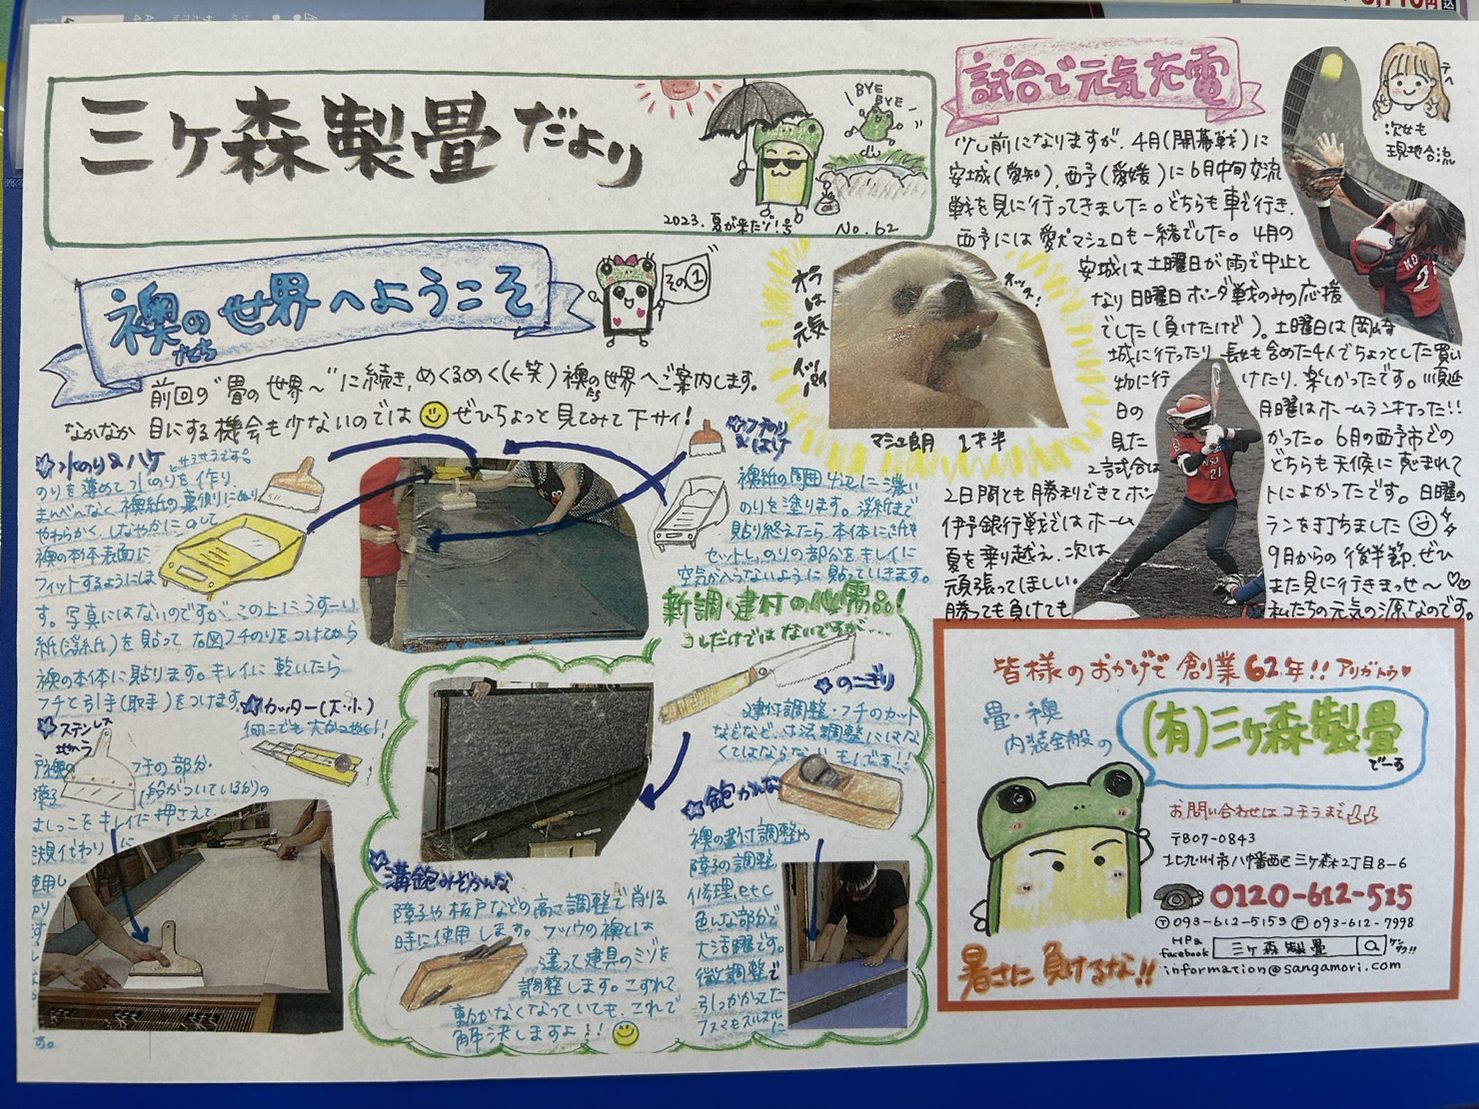 三ヶ森製畳だより
BYE BYE
2023. 夏が来たゾ!号 No.62
襖の世界へようこそ
たち
その①
前回の"畳の世界〜"に続き、めくるめく(←笑)襖の世界へご案内します。
たち
なかなか目にする機会も少ないのでは ぜひちょっと見てみて下サイ!
☆水のり&ハケ
のりを薄めて水のりを作り、
まんべんなく襖紙の裏側にぬり
やわらかく、しなやかにのして
襖の本体表面に
フィットするようにしま
す。写真にはないのですが、この上にうすーい
紙(浮紙)を貼って 右図フチのりをつけてから
襖の本体に貼ります。キレイに乾いたら
フチと引手(取手)をつけます。
☆フチのり&はけ
襖紙の周囲4辺に濃い
のりを塗ります。浮紙まで
貼り終えたら本体に紙を
セットし、のりの部分をキレイに
空気が入らないように貼っていきます。
☆カッター(大・小)
☆ステンレス
地ベラ
フチの部分・
をキレイに押さえて
新調・建付の必需品!
コレだけではないですが…
☆のこぎり
建付調整・フチのカット
などなど、寸法調整にはなく
てはならないもんです!!
☆鉋かんな
襖の建付調整や
障子の調整、
修理、etc
色んな部分で
大活躍です。
微調整で
引っかかってた
フスマもスルスルに
☆溝鉋みぞかんな
障子や板戸などの高さ調整で削る
時に使用します。フツウの襖とは
違って建具のミゾを
調整します。こすれて
動かなくなっていても、これで
解決しますよ!!
オラは元気イッパイ
マシュ朗 1才半
試合で元気充電
テヘ
次女も
現地合流
少し前になりますが、4月(開幕戦)に
安城(愛知)、西予(愛媛)に6月中旬交流
戦を見に行ってきました。どちらも車で行き、
西予には愛犬マシュロも一緒でした。4月の
安城は土曜日が雨で中止と
なり日曜日ホンダ戦のみの応援
でした(負けたけど)。土曜日は岡崎
城に行ったり、長女も含めた4人でちょっとした買い
物に行けたり、楽しかったです。順延
日の月曜はホームラン打った!!
見たかった。6月の西予市での
2試合はどちらも天候に恵まれて
2日間とも勝利できてホントによかったです。日曜の
伊予銀行戦ではホームランを打ちました
夏を乗り越え、次は9月からの後半節、ぜひ
頑張ってほしい。また見に行きまっせ〜
勝っても負けても私たちの元気の源なのです。
皆様のおかげで創業62年!! アリガトウ♥
畳・襖
内装全般の
(有)三ヶ森製畳
でーす
お問い合わせはコチラまで
〒807-0843
北九州市八幡西区三ヶ森2丁目8-6
0120-612-515
Ⓣ093-612-5153 Ⓕ093-612-7998
HP&
facebook 三ヶ森製畳
information@sangamori.com
暑さに負けるな!!